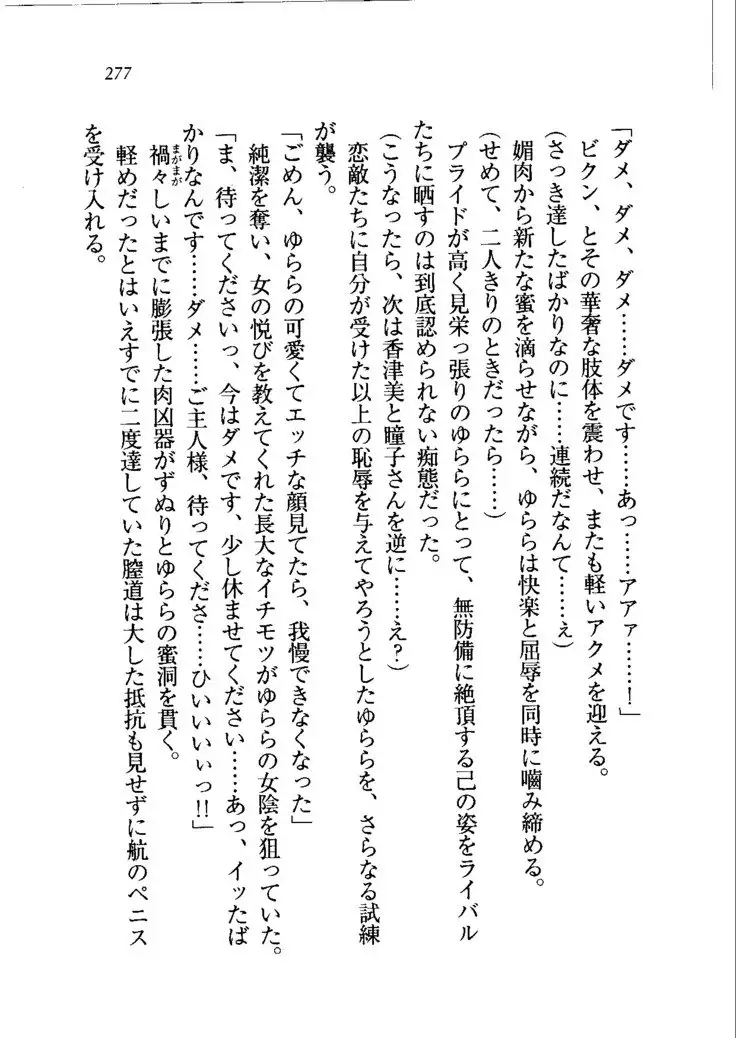 277
「ダメ、ダメ、ダメ……ダメです……あっ……アアァ……！」
ビクン、とその華奢な肢体を震わせ、またも軽いアクメを迎える。
(さっき達したばかりなのに……連続だなんて……ぇ)
媚肉から新たな蜜を滴らせながら、ゆららは快楽と屈辱を同時に嚙み締める。
(せめて、二人きりのときだったら……)
プライドが高く見栄っ張りのゆららにとって、無防備に絶頂する己の姿をライバル
たちに晒すのは到底認められない痴態だった。
(こうなったら、次は香津美と瞳子さんを逆に……え？)
恋敵たちに自分が受けた以上の恥辱を与えてやろうとしたゆららを、さらなる試練
が襲う。
「ごめん、ゆららの可愛くてエッチな顔見てたら、我慢できなくなった」
純潔を奪い、女の悦びを教えてくれた長大なイチモツがゆららの女陰を狙っていた。
「ま、待ってくださいっ、今はダメです、少し休ませてください……あっ、イッたば
かりなんです……ダメ……ご主人様、待ってくださ……ひいいいぃっ!!」
禍々しいまでに膨張した肉凶器がずぬりとゆららの蜜洞を貫く。
まがまが
軽めだったとはいえすでに二度達していた膣道は大した抵抗も見せずに航のペニス
を受け入れる。